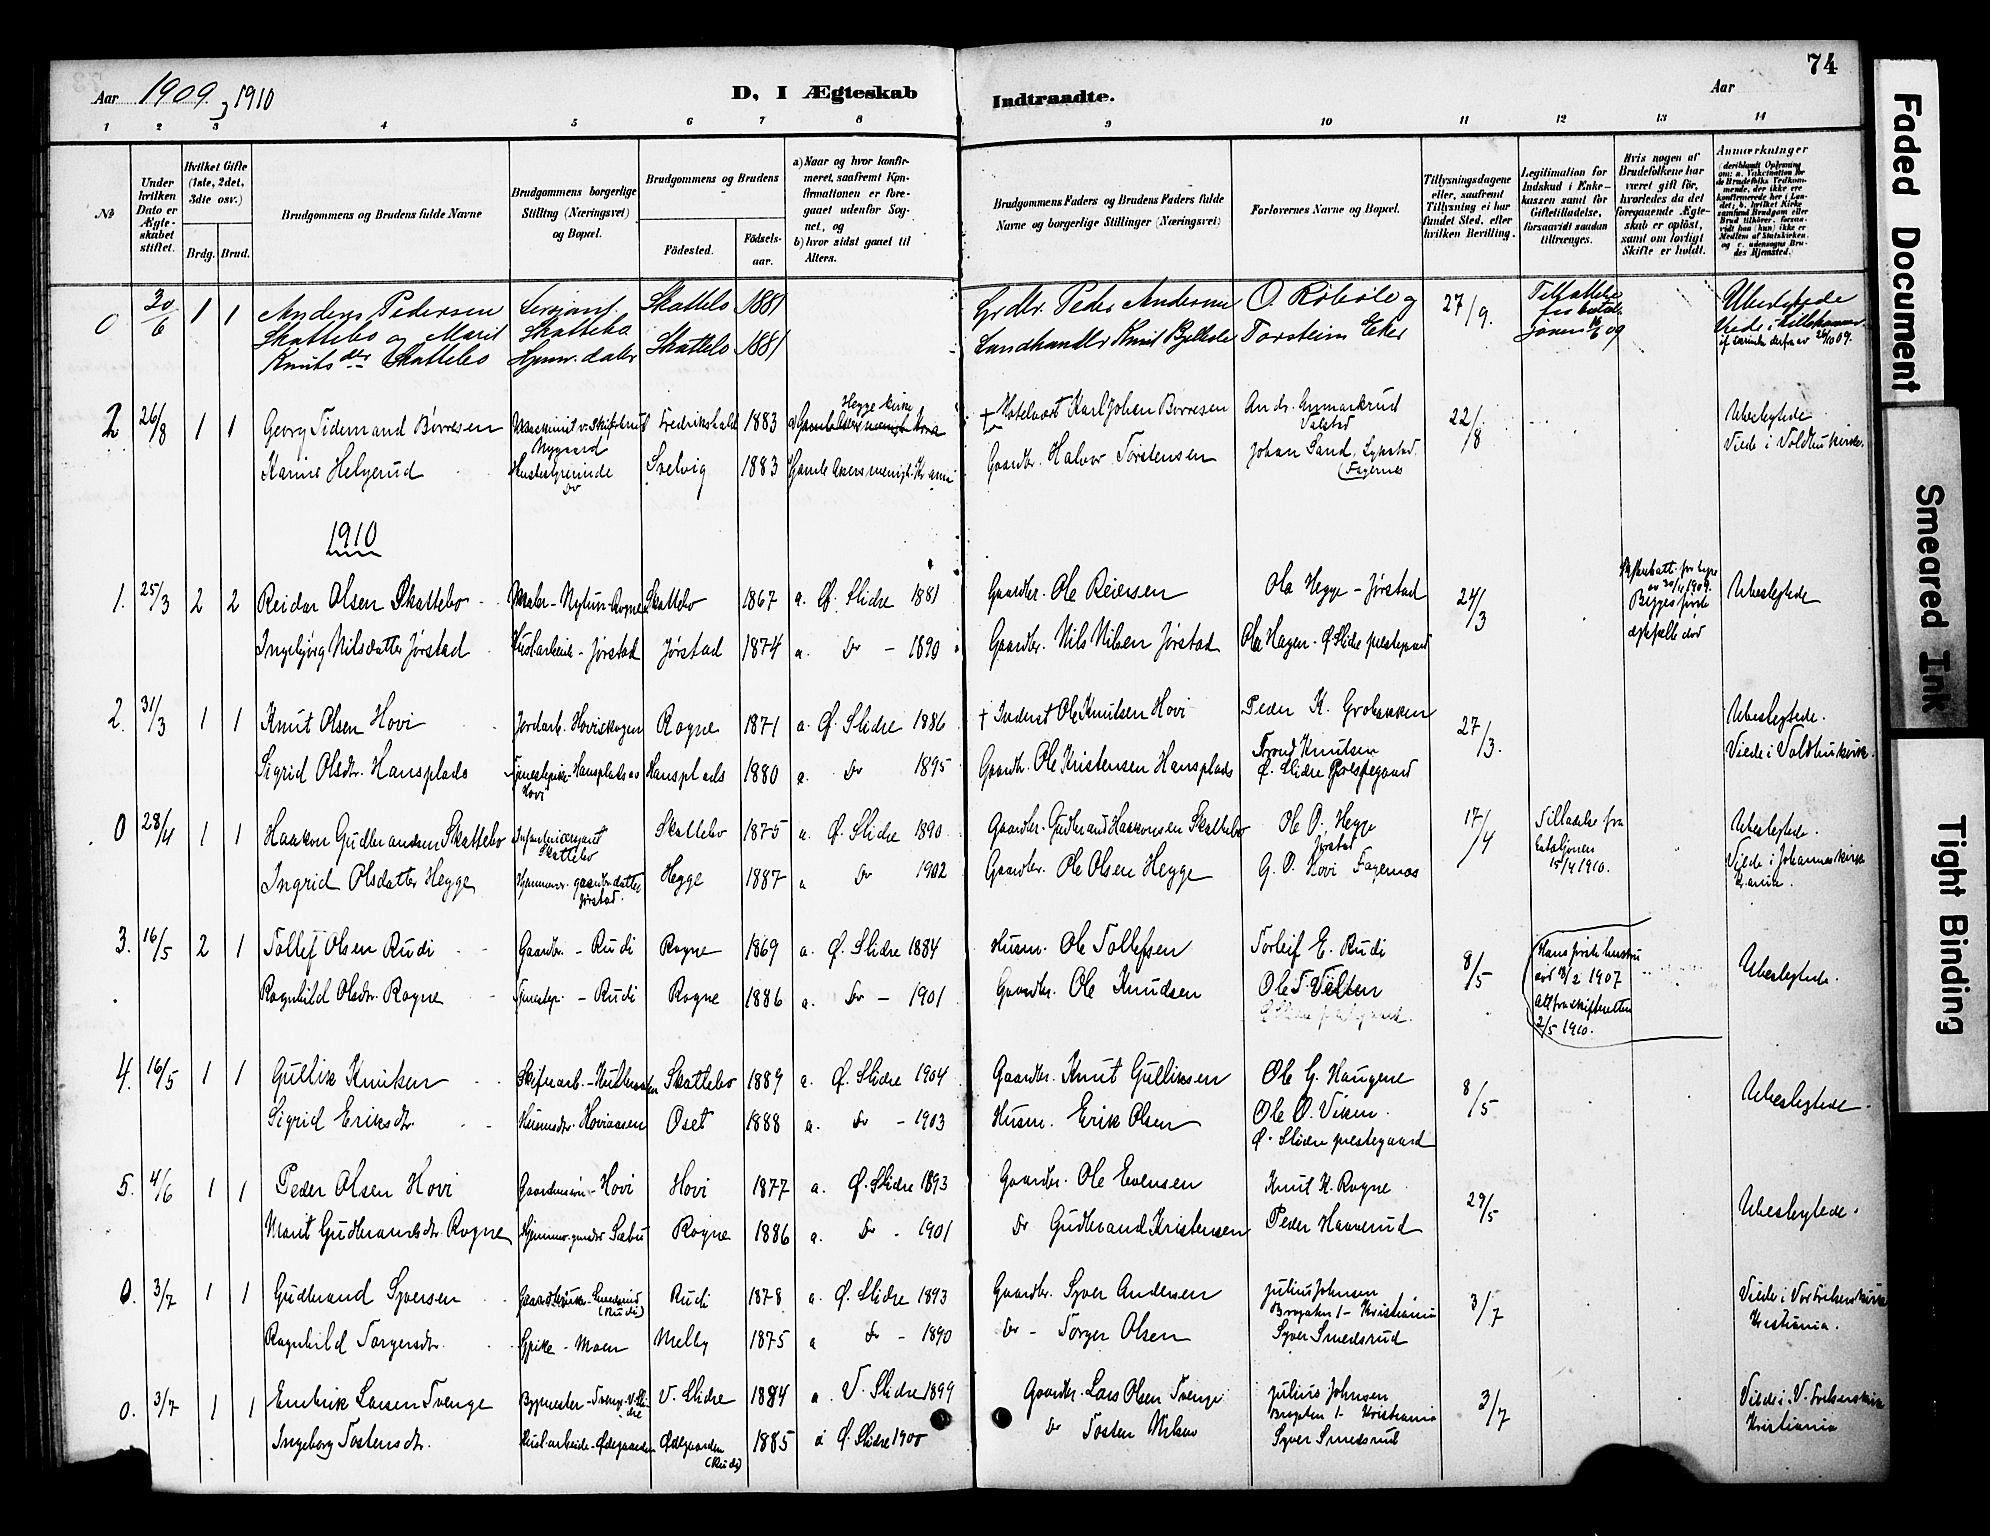 74
Aar 1909 , 1910
D, I Ægteskab Indtraadte.
Aar
1 2 3 4 5 6 7 8 9 10 11 12 13 14
№
Under hvilken Dato er Ægteskabet stiftet.
Hvilket Gifte (1ste, 2det, 3die osv.)
Brdg. Brud.
Brudgommens og Brudens fulde Navne
Brudgommens borgerlige Stilling (Næringsvei) og Bopæl.
Brudgommens og Brudens
Fødested.
Fødselsaar.
a) Naar og hvor konfirmeret, saafremt Konfirmationen er foregaaet udenfor Sognet, og
b) hvor sidst gaaet til Alters.
Brudgommens Faders og Brudens Faders fulde Navne og borgerlige Stillinger (Næringsvei)
Forlovernes Navne og Bopæl.
Tillysningsdagene eller, saafremt Tillysning ei har fundet Sted, efter hvilken Bevilling.
Legitimation for Indskud i Enkekassen samt for Giftetilladelse, forsaavidt saadan tiltrænges.
Hvis nogen af Brudefolkene har været gift før, hvorledes da det foregaaende Ægteskab er opløst, samt om lovligt Skifte er holdt.
Anmærkninger
0 30/6 1 1 Anders Pedersen Serjant Skattebo 1881 Grdbr. Peder Andersen O. Robøle og 27/9. Ubeslegtede
Skattebo og Marit Skattebo
Knuts dtr Skattebo Skattebo 1881 Landhandler Knut Torstein Eker
2 26/8 1 1 Georg Tidemand Børresen Fredrikshald 1883 Hegge kirke + Hotelvært Karl Johan Børresen 22/8 Ubeslegtede
Nygaard
Karine Helgerud Husbestyrerinde Svelvig 1883 Gamle Akers menigh. Gaardbr. Halvor Torstensen Johan Sand, (Fagernes Viede i Voldbu kirke.
1910
1. 25/3 2 2 Reidar Olsen Skattebo Maler - Nytun - Rogne Skattebo 1867 a. Ø. Slidre 1881 Gaardbr. Ole Reiersen Ola Hegge - Jørstad 24/3 Begges første ægtefælle død Ubeslegtede
Ingebjørg Nilsdatter Jørstad Husarbeide - Jørstad Jørstad 1874 a. Do - 1890 Gaardbr. Nils Nilsen Jørstad Ole Hagen - Ø Slidre prestegaard
2. 31/3 1 1 Knut Olsen Hovi Jordarb. Hoviskogen Rogne 1871 a. Ø. Slidre 1886 + Inderst Ole Knutsen Hovi Peder K. Grobakken 27/3. Ubeslegtede.
Sigrid Olsdtr. Hansplads Hansplads 1880 a. Do 1895 Gaardbr. Ole Kristensen Hansplads Trond Knutsen Ø. Slidre Prestegaard Viede i Voldbu kirke.
0 28/4 1 1 Haakon Gudbrandsen Skattebo Infanterisergeant Skattebo Skattebo 1875 a. Ø. Slidre 1890 Gaardbr. Gudbrand Haakonsen Skattebo Ole O. Hegge Jørstad 17/4 Tilladelse fra Bataljonen 15/4 1910. Ubeslegtede.
Ingrid Olsdatter Hegge Hjemmev. gaardbr.datter Jørstad. Hegge 1887 a Do 1902 Gaardbr. Ole Olsen Hegge G. O. Hovi Fagernes Viede i Johannes kirke Krania.
3. 16/5 2 1 Tollef Olsen Rudi Gaardbr. - Rudi Rogne 1869 a. Ø. Slidre 1884 Husm. Ole Tollefsen Torleif E. Rudi 8/5 Hans første hustru død 18/2 1907 Att fra skifteretten 2/5 1910. Ubeslegtede.
Ragnhild Olsdtr. Rogne Tjenestep. - Rudi Rogne 1886 a. Do - 1901 Gaardbr. Ole Knudsen Ole T. Viken
4. 16/5 1 1 Gullik Knutsen Skattebo 1889 a. Ø. Slidre 1904 Gaardbr. Knut Gulliksen Ole G. Haugene 8/5 Ubeslegtede.
Sigrid Eriksdtr. Husmdtr. Hoviaasen Oset 1888 a. Do - 1903 Husm. Erik Olsen Ole O. Viken.
Ø. Slidre prestegaard
5. 4/6 1 1 Peder Olsen Hovi Gaardmand - Hovi Hovi 1877 a. Ø. Slidre 1893 Gaardbr. Ole Evensen Knut K. Rogne 29/5 Ubeslegtede.
Marit Gudbrandsdtr. Rogne Rogne 1886 a. Do - 1901 Do Gudbrand Kristensen Peder Haaverud
0. 3/7 1 1 Gudbrand Syversen (Rudi) Rudi 1878 a. Ø. Slidre 1893 Gaardbr. Syver Andersen Julius Johnsen Brogaten 1 - Kristiania 3/7 Viede i Vor Frelsers kirke Kristiania.
Ragnhild Torgersdtr. Sypike - Moen Melby 1875 a Do - 1890 Do - Torger Olsen Syver Smedsrud
0. 3/7 1 1 Embrik Larsen Tvenge Bygmester - Tvenge V. Slidre V. Slidre 1884 a. V. Slidre 1899 Gaardbr. Lars Olsen Tvenge Julius Johnsen Brogaten 1 - Kristiania 3/7 Viede i V. Frelsers kirke Kristiania
Ingeborg Tostensdtr. Husl. arbeide - Ødegaarden Ødegaarden (Rudi) 1885 a Ø. Slidre 1900 Do Tosten Nilsen Syver Smedsrud
Faded Document
Smeared Ink
Tight Binding